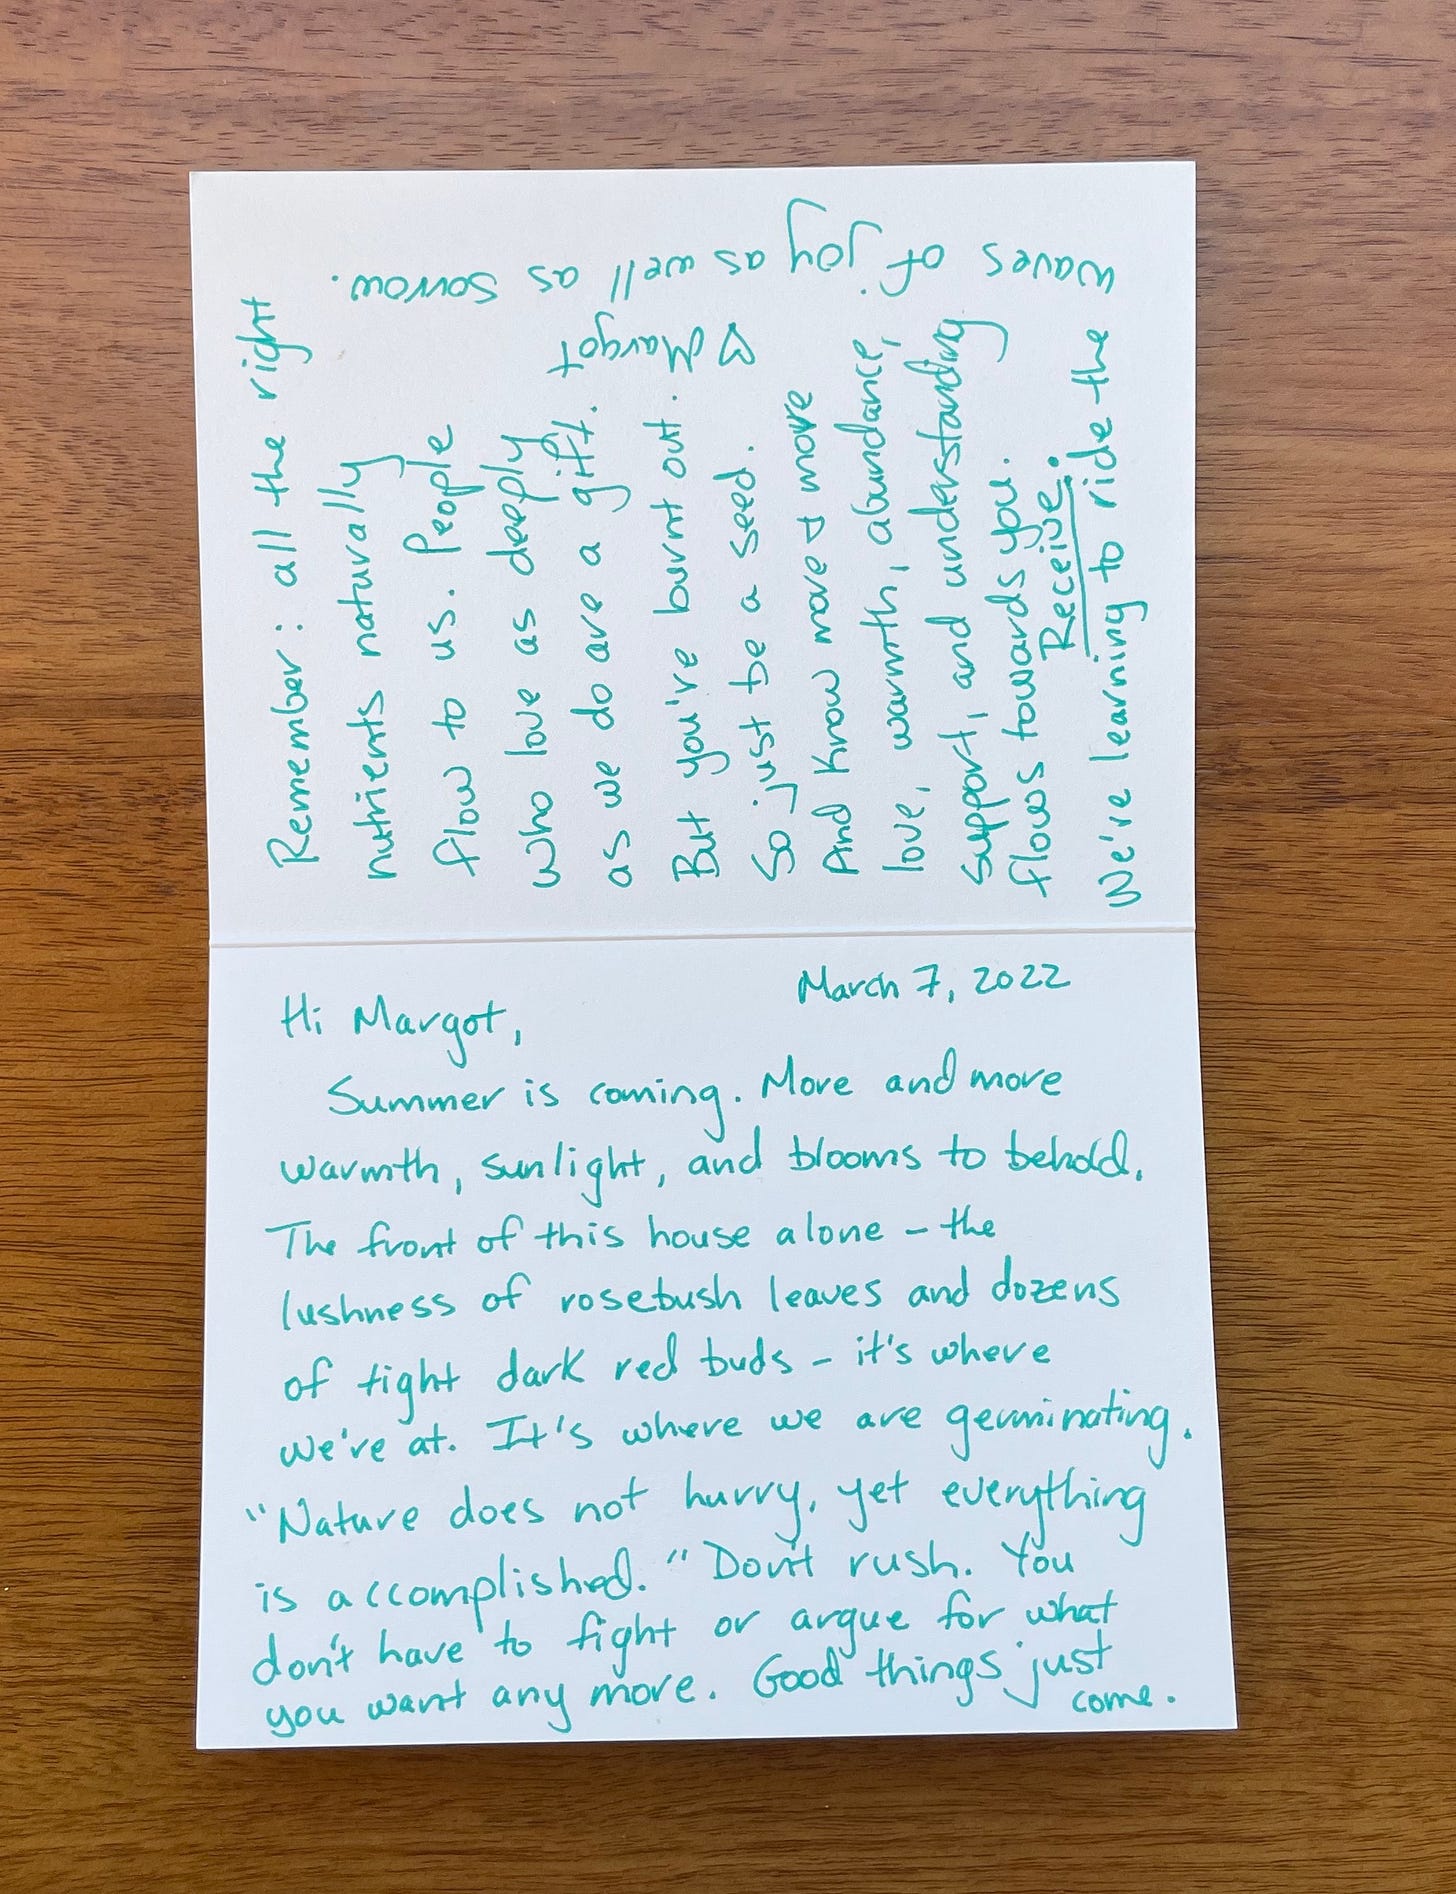 March 7, 2022
Hi Margot,
Summer is coming. More and more
warmth, sunlight, and blooms to behold.
The front of this house alone – the
lushness of rosebush leaves and dozens
of tight dark red buds – it's where
we're at. It's where we are germinating.
"Nature does not hurry, yet everything
is accomplished." Don't rush. You
don't have to fight or argue for what
you want any more. Good things just
come.
Remember: all the right
nutrients naturally
flow to us. People
who love as deeply
as we do are a gift.
But you're burnt out.
So just be a seed.
And know more & more
love, warmth, abundance,
support, and understanding
flows towards you.
Receive.
We're learning to ride the
waves of joy as well as sorrow.
♡ Margot